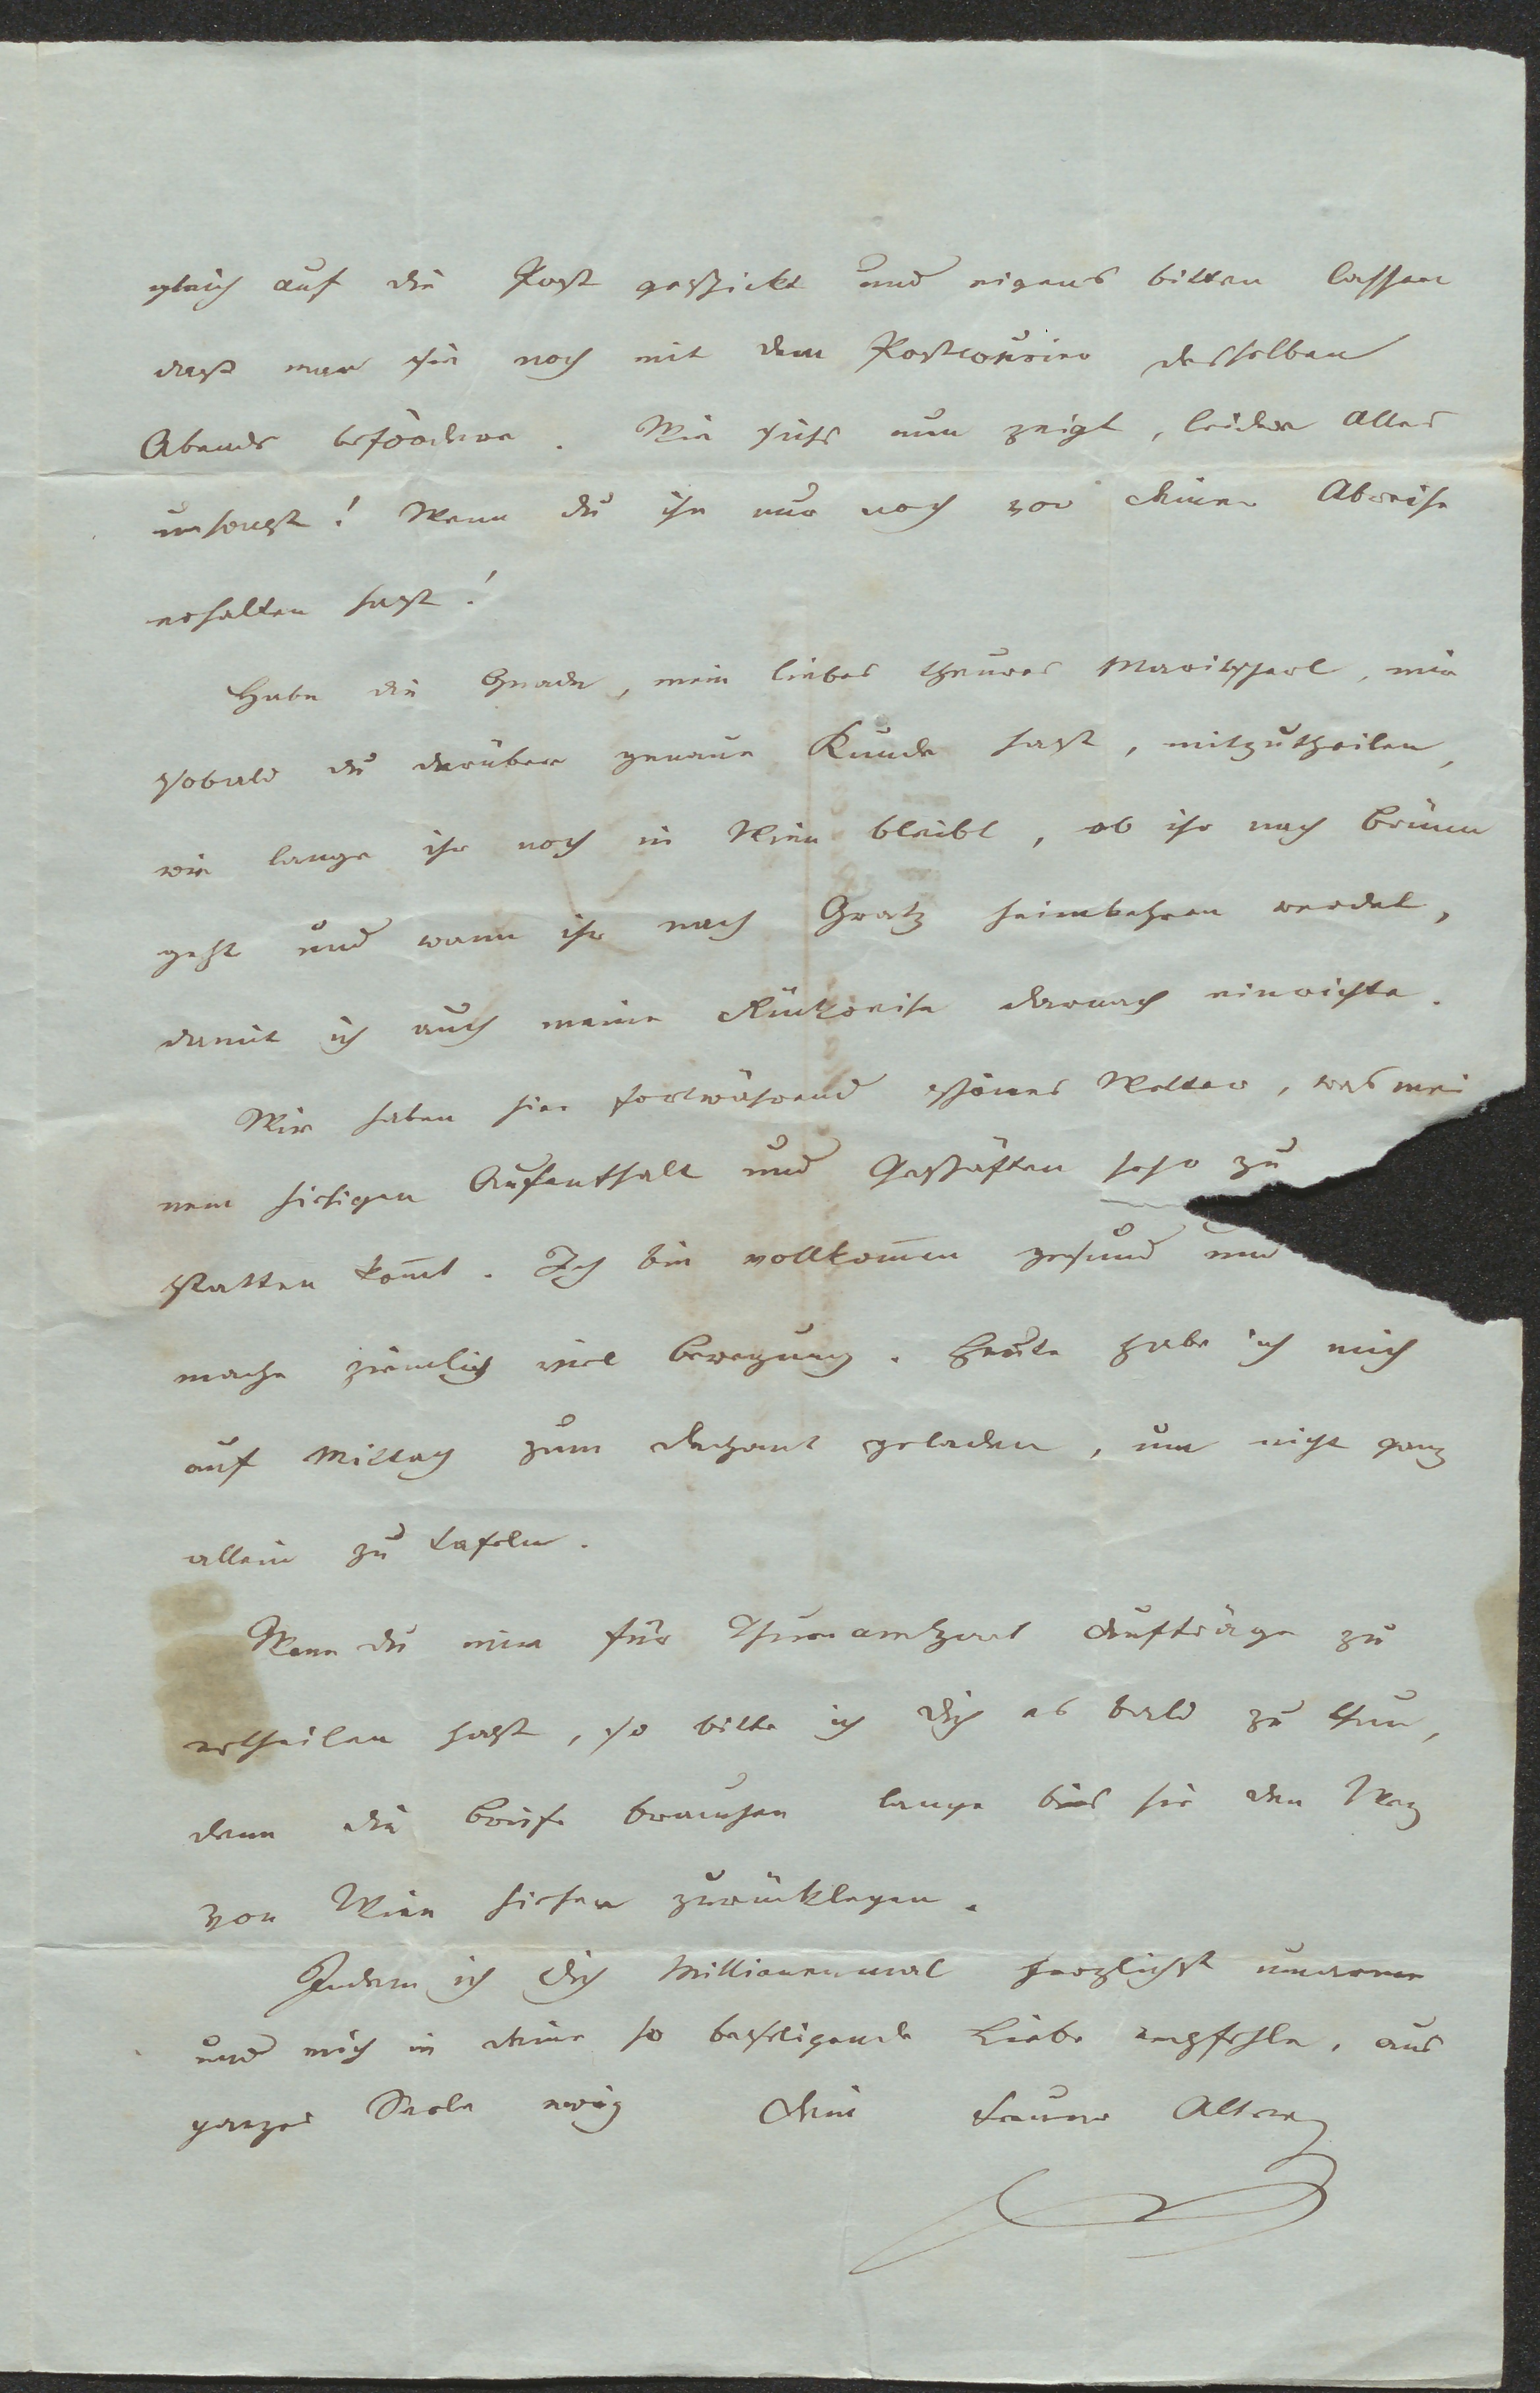 gleich auf die Post geschickt und eigens bitten lassen
daß man sie noch mit dem Postcourier desselben
Abends befördere. Wie sichs nun zeigt, leider Alles
umsonst! Wenn du ihn nur noch vor deiner Abreise
erhalten hast!
Habe die Gnade, mein liebes theures Maritscherl, mir
sobald du darüber genaue Kunde hast, mitzutheilen,
wie lange ihr noch in Wien bleibt, ob ihr nach Brünn
geht und wann ihr nach Gratz heimkehren werdet,
damit ich auch meine Rückreise darnach einrichte.
Wir haben hier fortwährend schönes Wetter, was mei
nem hiesigen Aufenthalt und Geschäften sehr zu
statten kom̄t. Ich bin vollkom̄en gesund und
mache ziemlich viel Bewegung. Heute habe ich mich
auf Mittag zum Dechant geladen, um nicht ganz
allein zu tafeln.
Wenn du mir für Thurnamhart Aufträge zu
ertheilen hast, so bitte ich dich es bald zu thun,
denn die Briefe brauchen lange bis sie den Weg
von Wien hieher zurücklegen.
Indem ich dich Millionenmal herzlichst umarme
und mich in deine so beseligende Liebe empfehle, aus
ganzer Seele ewig dein treuer Alter